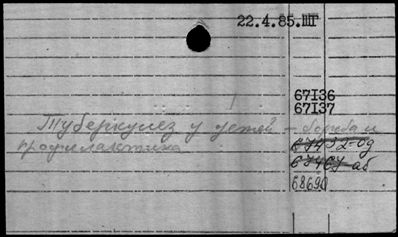 22.4.85.ШТ
67136
67137
Туберкулез у детей - борьба и
профилактика
67432-од
67467-аб
68690